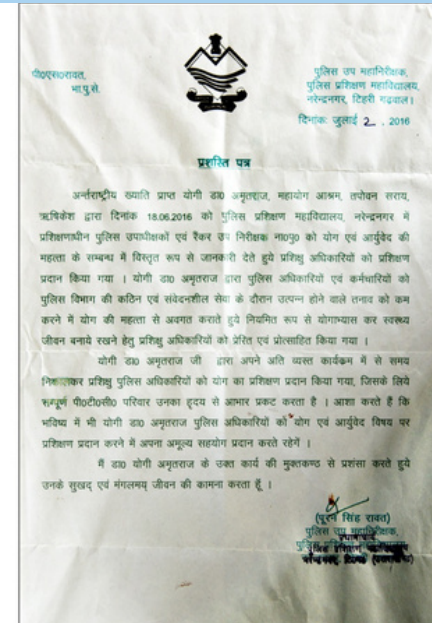 पी0एस0रावत,
भा.पु.से.
पुलिस उप महानिरीक्षक,
पुलिस प्रशिक्षण महाविद्यालय,
नरेन्द्रनगर, टिहरी गढ़वाल।
दिनांक: जुलाई 2 . 2016
प्रशस्ति पत्र
अर्न्तराष्ट्रीय ख्याति प्राप्त योगी डा0 अमृतराज, महायोग आश्रम, तपोवन सराय,
ऋषिकेश द्वारा दिनांक 18.06.2016 को पुलिस प्रशिक्षण महाविद्यालय, नरेन्द्रनगर में
प्रशिक्षणाधीन पुलिस उपाधीक्षकों एवं रैंकर उप निरीक्षक ना0पु0 को योग एवं आर्युवेद की
महत्ता के सम्बन्ध में विस्तृत रूप से जानकारी देते हुये प्रशिक्षु अधिकारियों को प्रशिक्षण
प्रदान किया गया । योगी डा0 अमृतराज द्वारा पुलिस अधिकारियों एवं कर्मचारियों को
पुलिस विभाग की कठिन एवं संवेदनशील सेवा के दौरान उत्पन्न होने वाले तनाव को कम
करने में योग की महत्ता से अवगत कराते हुये नियमित रूप से योगाभ्यास कर स्वस्थ्य
जीवन बनाये रखने हेतु प्रशिक्षु अधिकारियों को प्रेरित एवं प्रोत्साहित किया गया ।
योगी डा0 अमृतराज जी द्वारा अपने अति व्यस्त कार्यक्रम में से समय
निकालकर प्रशिक्षु पुलिस अधिकारियों को योग का प्रशिक्षण प्रदान किया गया, जिसके लिये
सम्पूर्ण पी0टी0सी0 परिवार उनका हृदय से आभार प्रकट करता है । आशा करते हैं कि
भविष्य में भी योगी डा0 अमृतराज पुलिस अधिकारियों को योग एवं आर्युवेद विषय पर
प्रशिक्षण प्रदान करने में अपना अमूल्य सहयोग प्रदान करते रहेगें ।
मैं डा0 योगी अमृतराज के उक्त कार्य की मुक्तकण्ठ से प्रशंसा करते हुये
उनके सुखद् एवं मंगलमय् जीवन की कामना करता हूँ ।
(पूरन सिंह रावत)
पुलिस उप महानिरीक्षक,